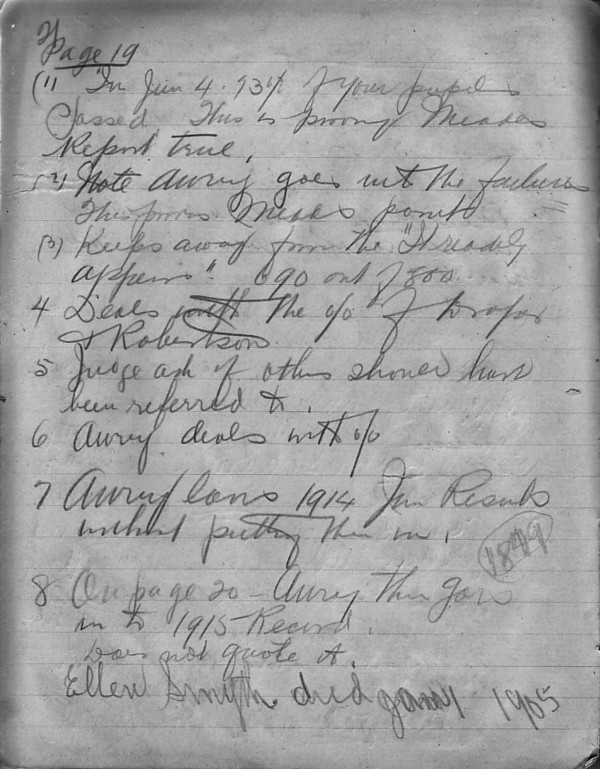 Page 19
(1) "In Jun 4. 93% of your pupils
passed This is proving Meades
Report true.
(2) Note Avory goes into the failures
This proves Meades points
(3) Keeps away from the
690 out of 800
4 Deals with the % of
& Robertson
5 Judge ask if others should have
been referred to.
6 Avory deals with %
7 Avory 1914 Jun Results
without putting them in.
1849
8 On page 20 - Avory then goes
in to 1915 Record.
Does not quote it.
Ellen Smyth died 1905